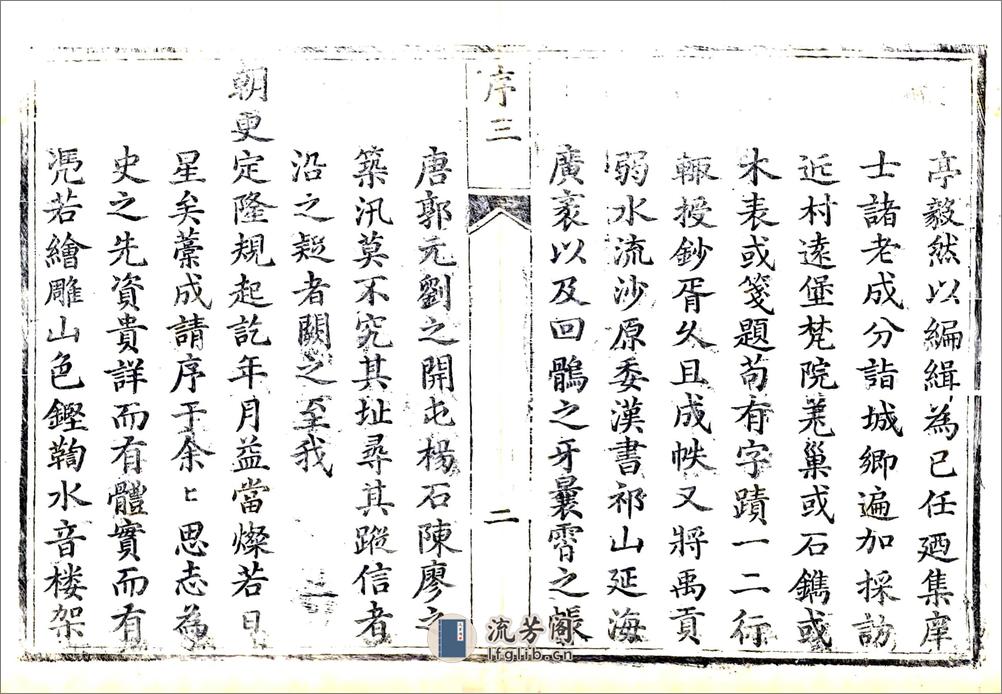 亭毅然以編緝為已任廼集庠
士諸老成分詣城鄉遍加採訪
近村遠堡梵院羌巢或石鐫或
木表或箋題茍有字蹟一二行
輒授鈔胥久且成帙又將禹貢
弱水流沙原委漢書祁山延海
廣袤以及回鶻之牙曩霄之帳
序三
二
唐郭元劉之開屯楊石陳廖之
築汛莫不究其址尋其蹤信者
沿之疑者闕之至我
朝更定隆規起訖年月益當燦若日
星矣藁成請序于余ヒ思志為
史之先資貴詳而有體實而有
凴若繪雕山色鏗鞫水音楼架
流芳閣
lfglib.cn